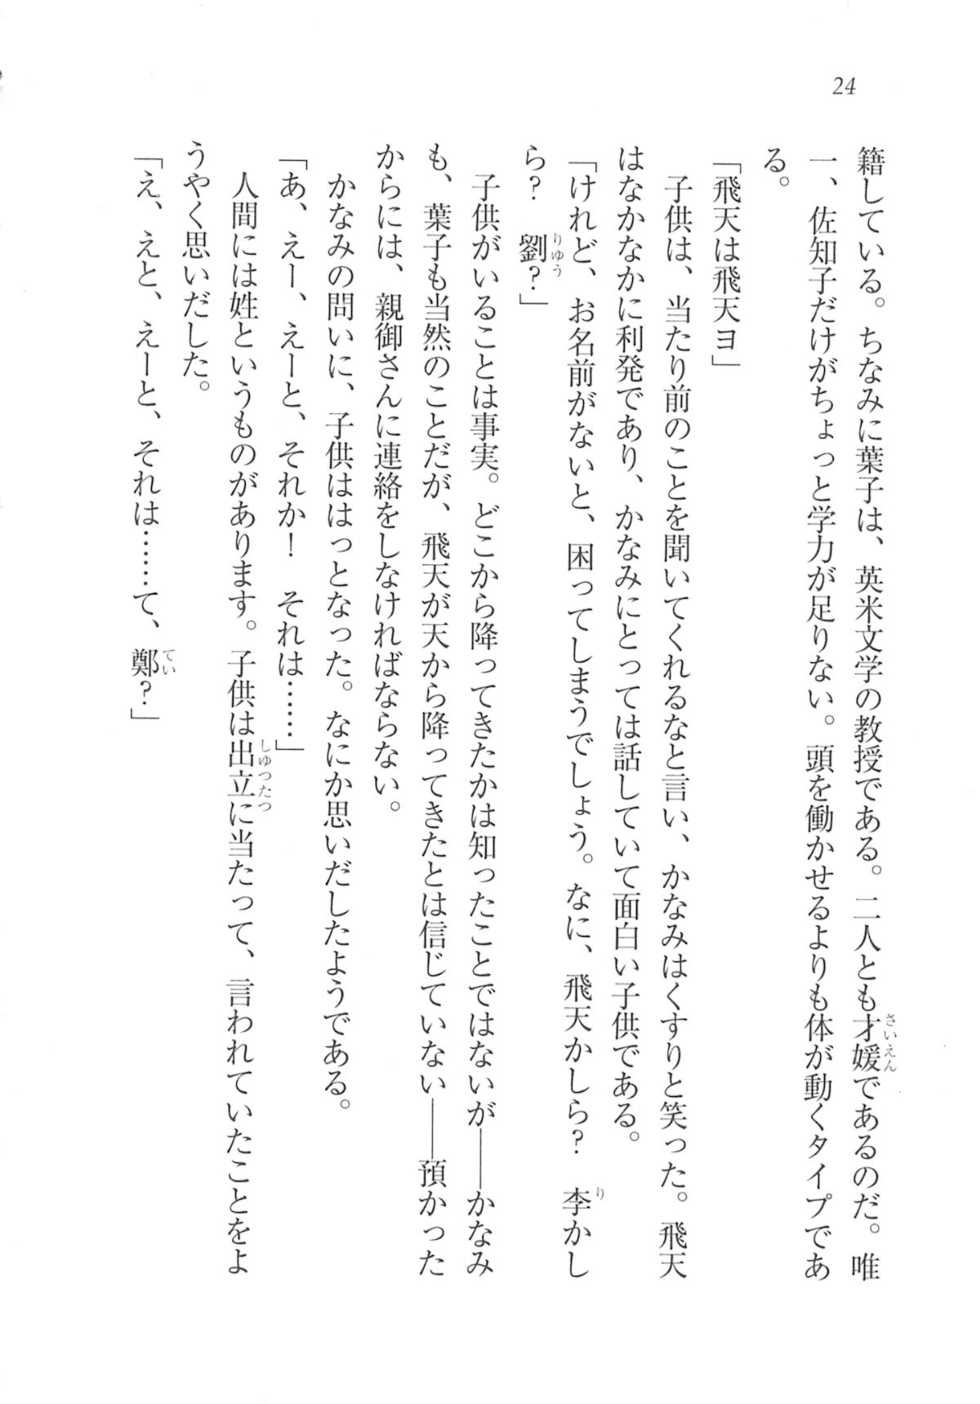 24
籍している。ちなみに葉子は、英米文学の教授である。二人とも才媛であるのだ。唯
一、佐知子だけがちょっと学力が足りない。頭を働かせるよりも体が動くタイプであ
る。
「飛天は飛天ヨ」
　子供は、当たり前のことを聞いてくれるなと言い、かなみはくすりと笑った。飛天
はなかなかに利発であり、かなみにとっては話していて面白い子供である。
「けれど、お名前がないと、困ってしまうでしょう。なに、飛天かしら？　李かし
ら？　劉？」
　子供がいることは事実。どこから降ってきたかは知ったことではないが――かなみ
も、葉子も当然のことだが、飛天が天から降ってきたとは信じていない――預かった
からには、親御さんに連絡をしなければならない。
　かなみの問いに、子供ははっとなった。なにか思いだしたようである。
「あ、えー、えーと、それか！　それは……」
　人間には姓というものがあります。子供は出立に当たって、言われていたことをよ
うやく思いだした。
「え、えと、えーと、それは……て、鄭？」
さいえん
り
りゆう
しゆつたつ
てい